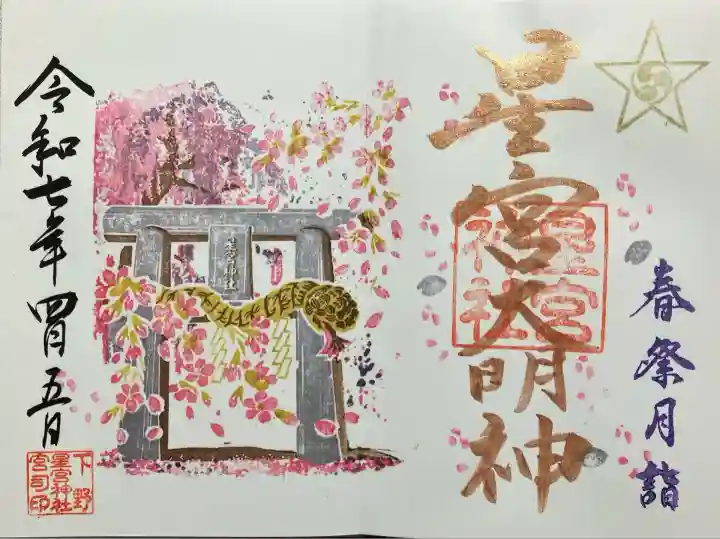 春祭月詣
星宮大明神
星宮
神社
星宮神社
令和七年四月五日
下野
星宮神社
宮司印